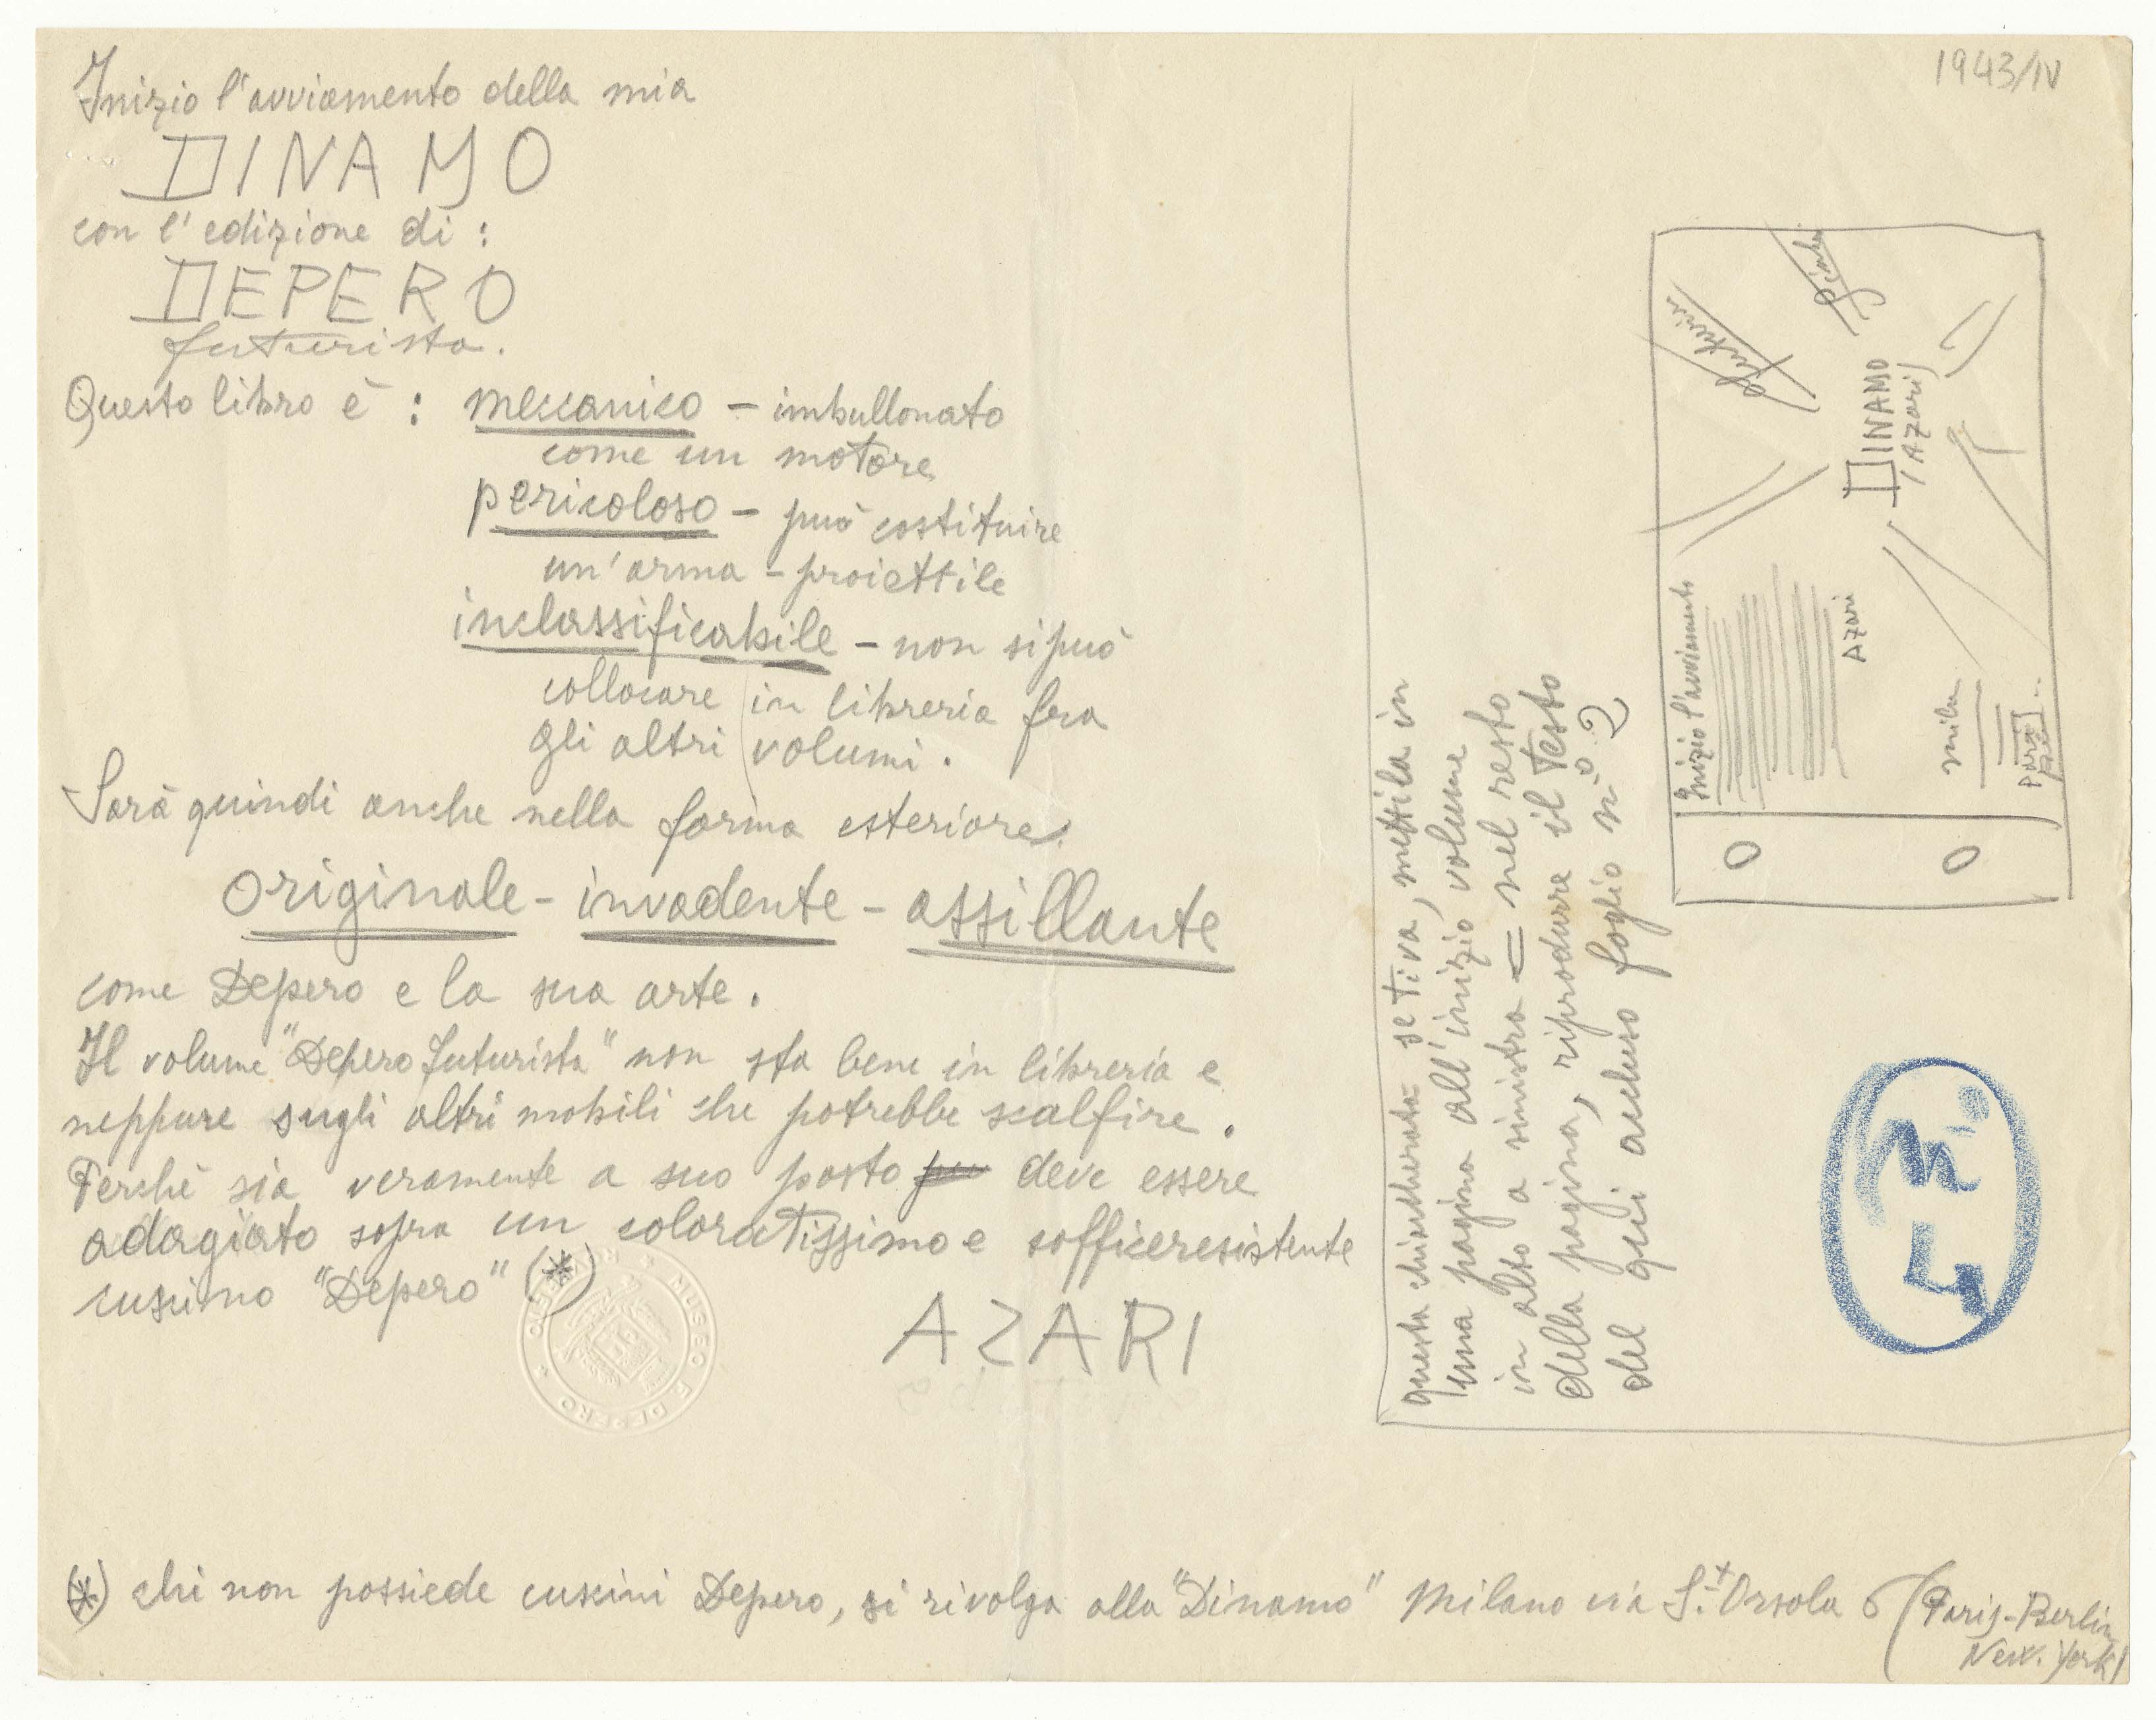 1943/IV
Inizio l'avviamento della mia
DINAMO
con l'edizione di :
DEPERO
futurista.
Questo libro è : meccanico – imbullonato
come un motore
pericoloso – può costituire
un'arma – proiettile
inclassificabile – non si può
collocare in libreria fra
gli altri volumi.
Sarà quindi anche nella forma esteriore
originale – invadente – assillante
come Depero e la sua arte.
Il volume "Depero futurista" non sta bene in libreria e
neppure sugli altri mobili che potrebbe scalfire.
Perchè sia veramente a suo posto deve essere
adagiato sopra un coloratissimo e sofficeresistente
cuscino "Depero" (*)
AZARI
MUSEO F. DEPERO
questa chiacchierata se ti va, mettila in
una pagina all'inizio volume
in alto a sinistra = nel resto
della pagina, riprodurre il testo
del qui accluso foglio n.o 2
DINAMO
Azari
Inizio l'avviamento
Azari
N.o
4
(*) chi non possiede cuscini Depero, si rivolga alla "Dinamo" Milano via S.t Orsola 6 (Paris-Berlin
New. York)